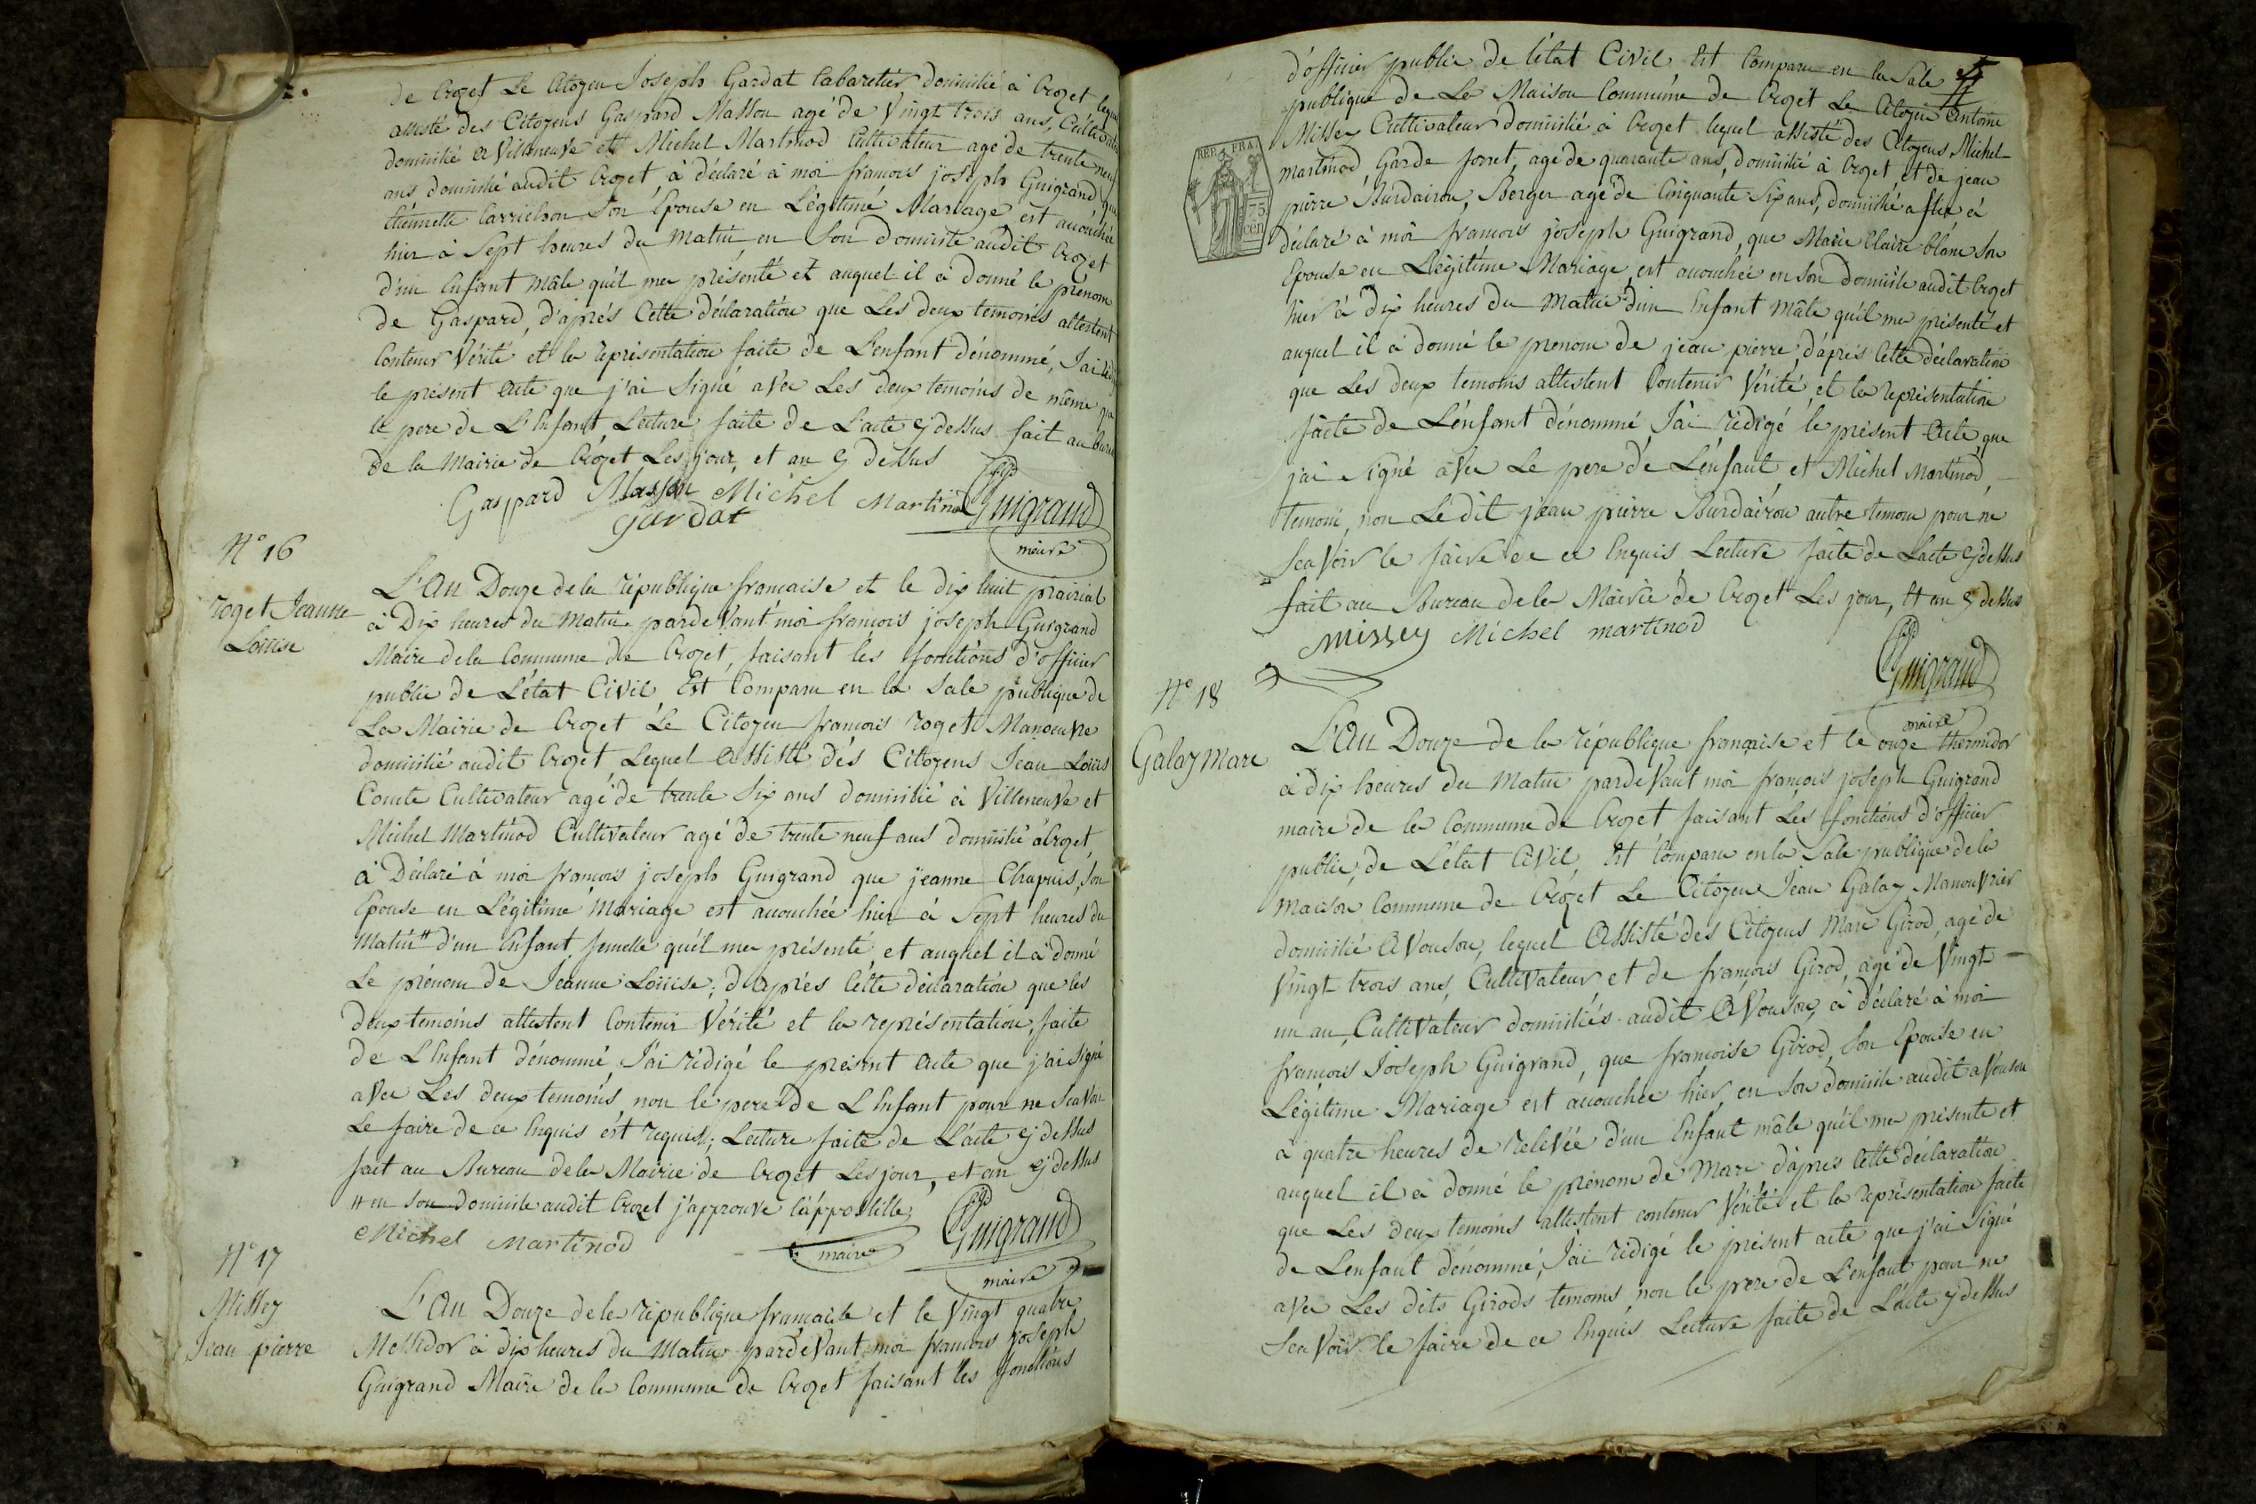 de Crozet Le Citoyen Joseph Gardat Cabaretier domicilié à Crozet lequel
assisté des Citoyens Gaspard Masson agé de Vingt trois ans, Cultivateur
domicilié a Villeneuve et Michel Martinod Cultivateur agé de trente neuf
ans domicilié audit Crozet à déclaré à moi francois joseph Guigrand que
étiennette son Épouse en Légitimé Mariage est accouchée
hier à Sept heures du Matin en son domicile audit Crozet
d'un Enfant mâle qu'il me présenté et auquel il a donné le prénom
de Gaspard, d'aprés Cette déclaration que Les deux temoins attestent
Contenir Vérité et la représentation faite de L'enfant dénommé, J'ai rédigé
le présent acte que j'ai Signé avec Les deux temoins de même que
le pere de L'Enfant Lecture faite de L'acte cy dessus fait au Bureau
de la Mairie de Crozet Les jour, et an cy dessus
Gaspard Masson Michel Martinod Guigrand
gardat
maire
N° 16
roget Jeanne
Louise
L'An Douze de la république francaise et le dix huit prairial
à Dix heures du Matin pardevant moi francois joseph Guigrand
Maire de la Commune de Crozet, faisant les fonctions d'officier
public de L'état Civil Est Comparu en la Sale publique de
La Mairie de Crozet Le Citoyen francois roget Manoeuvre
domicilié audit Crozet Lequel assisté dés Citoyens Jean Louis
Comte Cultivateur agé de trente Six ans domicilié à Villeneuve et
Michel Martinod Cultivateur agé de trente neuf ans domicilié à Crozet,
à Déclaré à moi francois joseph Guigrand que jeanne Chapuis, Son
Epouse en Légitime Mariage est accouchée hier à Sept heures du
Matin # d'un Enfant femelle qu'il me présenté, et auquel il à donné
Le prénom de Jeanne Louise; d'aprés Cette déclaration que les
deux temoins attestent Contenir Vérité et la représentation, faite
de L'Enfant dénommé, J'ai rédigé le présent acte que j'ai Signé
avec Les deux temoins non le pere de L'Enfant pour ne Scavoir
Le faire de ce Enquis ét requis; Lecture faite de L'acte cy dessus
fait au Bureau de la Mairie de Crozet Les jour, et an cy dessus
# en Son domicile audit Crozet j'approuve l'appostille;
Michel Martinod maire Guigrand
maire
N° 17
Missey
Jean pierre
L'An Douze de la république francaise et le Vingt quatre
Messidor à dix heures du Matin pardevant moi francois joseph
Guigrand Maire de la Commune de Crozet faisant les fonctions
d'officier public de L'état Civil Est Comparu en la Sale
publique de La Maison Commune de Crozet Le Citoyen Antoine
Missey Cultivateur domicilié à Crozet lequel assisté des Citoyens Michel
martinod, Garde forret, agé de quarante ans, domicilié à Crozet et de jean
REP. FRA.
75
cen
pierre Burdairon, Berger agé de Cinquante Six ans, domicilié à
déclaré à moi francois joseph Guigrand, que Marie Claire blanc Son
Epouse en Légitime Mariage, est accouchée en Son domicile audit Crozet
hier à dix heures du Matin d'un Enfant Mâle qu'il me présenté et
auquel il à donné le prenom de jean pierre d'aprés Cette déclaration
que Les deux temoins attestent Contenir Vérité, et la représentation
faite de L'énfant dénommé J'ai rédigé le présent acte que
j'ai Signé avec Le pere de L'énfant, et Michel Martinod,
temoin, non Le dit jean pierre Burdairon autre temoin pour ne
Scavoir le faire de ce Enquis Lecture faite de Lacte cy dessus
fait au Bureau de la Mairie de Crozet Les jour, et an cy dessus
Missey Michel martinod
Guigrand
maire
N° 18
Galay Marc
L'An Douze de la république française et le onze thermidor
à dix heures du Matin pardevant moi françois joseph Guigrand
maire de la Commune de Crozet faisant Les fonctions d'officier
public, de L'état Civil, Est Comparu en la Sale publique de la
maison Commune de Crozet Le Citoyen Jean Galay Manouvrier
domicilié Avouson, lequel Assisté des Citoyens Marc Girod, agé de
Vingt trois ans, Cultivateur et de françois Girod, agé de Vingt
un an, Cultivateur domiciliés audit Avouson, à déclaré à moi
françois Joseph Guigrand, que françoise Girod, Son Epouse en
Légitime Mariage est accouchée hier, en Son domicile audit avouson
à quatre heures de relevée d'un Enfant mâle qu'il me présente et
auquel il à donné le prénom de Marc d'aprés Cette déclaration
que Les deux temoins attestent contenir Vérité et la représentation faite
de L'enfant dénommé, J'ai rédigé le présent acte que j'ai Signé
avec Les dits Girods temoins, non le pere de L'enfant pour ne
Scavoir le faire de ce Enquis Lecture faite de L'acte cy dessus